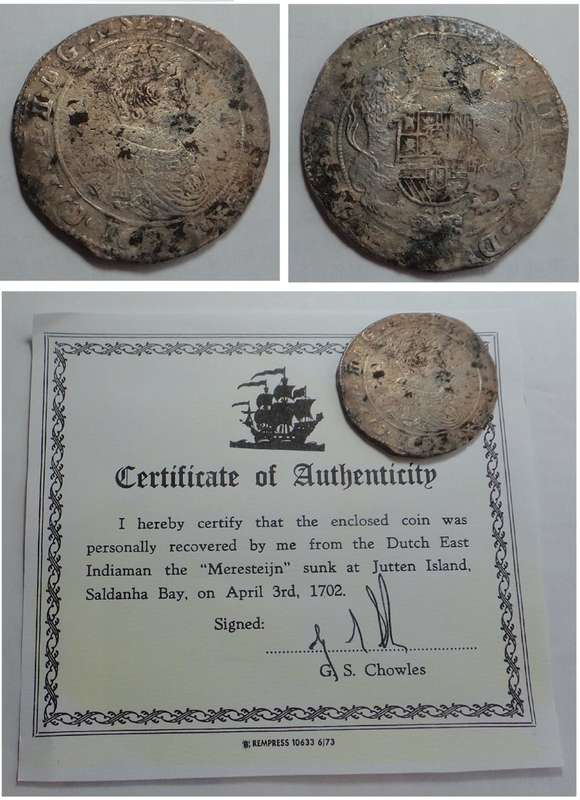 Certificate of Authenticity
I hereby certify that the enclosed coin was
personally recovered by me from the Dutch East
Indiaman the "Meresteijn" sunk at Jutten Island,
Saldanha Bay, on April 3rd, 1702.
Signed:
G. S. Chowles
REMPRESS 10633 6/73